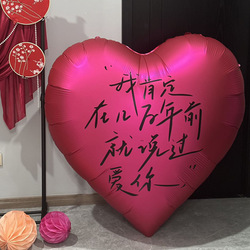 “我肯定
在几百年前
就说过
爱你…”